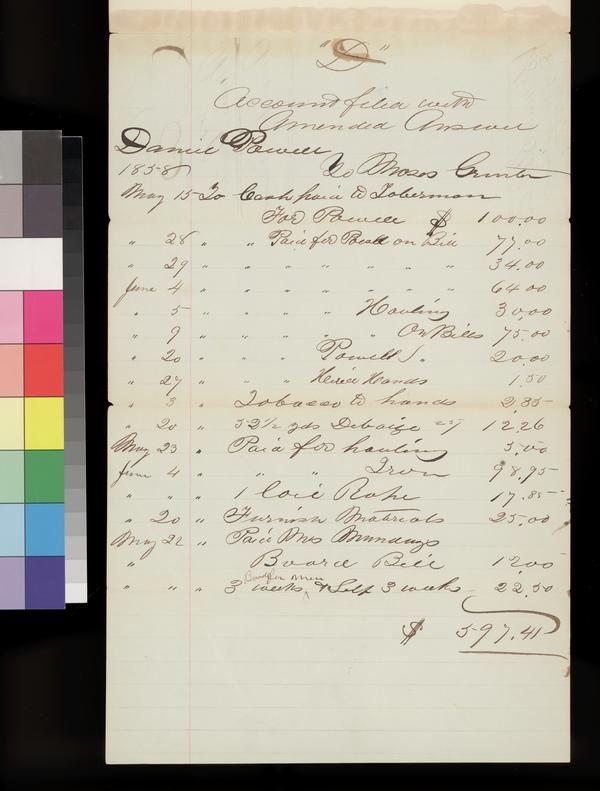 "D"
Account filed with
Amended Answer
Daniel Powell
1858 To Moses Grinter
May 15 To Cash paid to Toberman
For Powell $ 100.00
" 28 " " Paid for Powell on Bill 77.00
" 29 " " " " " " " 34.00
June 4 " " " " " " " 64.00
" 5 " " " " Hauling 30.00
" 9 " " " " On Bills 75.00
" 20 " " " Powell " 20.00
" 27 " " " Hired Hands 1.50
" 3 " Tobacco to hands 2.85
" 20 " 52½ yds 12.26
May 23 " Paid for hauling 5.00
June 4 " " " Iron 98.95
" " " 1 Coil Rope 17.85
" 20 " Furnish Materials 25.00
May 22 " Paid Mrs Mundays
" Board Bill 12.00
" " " 3 weeks Board for Men & Self 3 weeks 22.50
$ 597.41